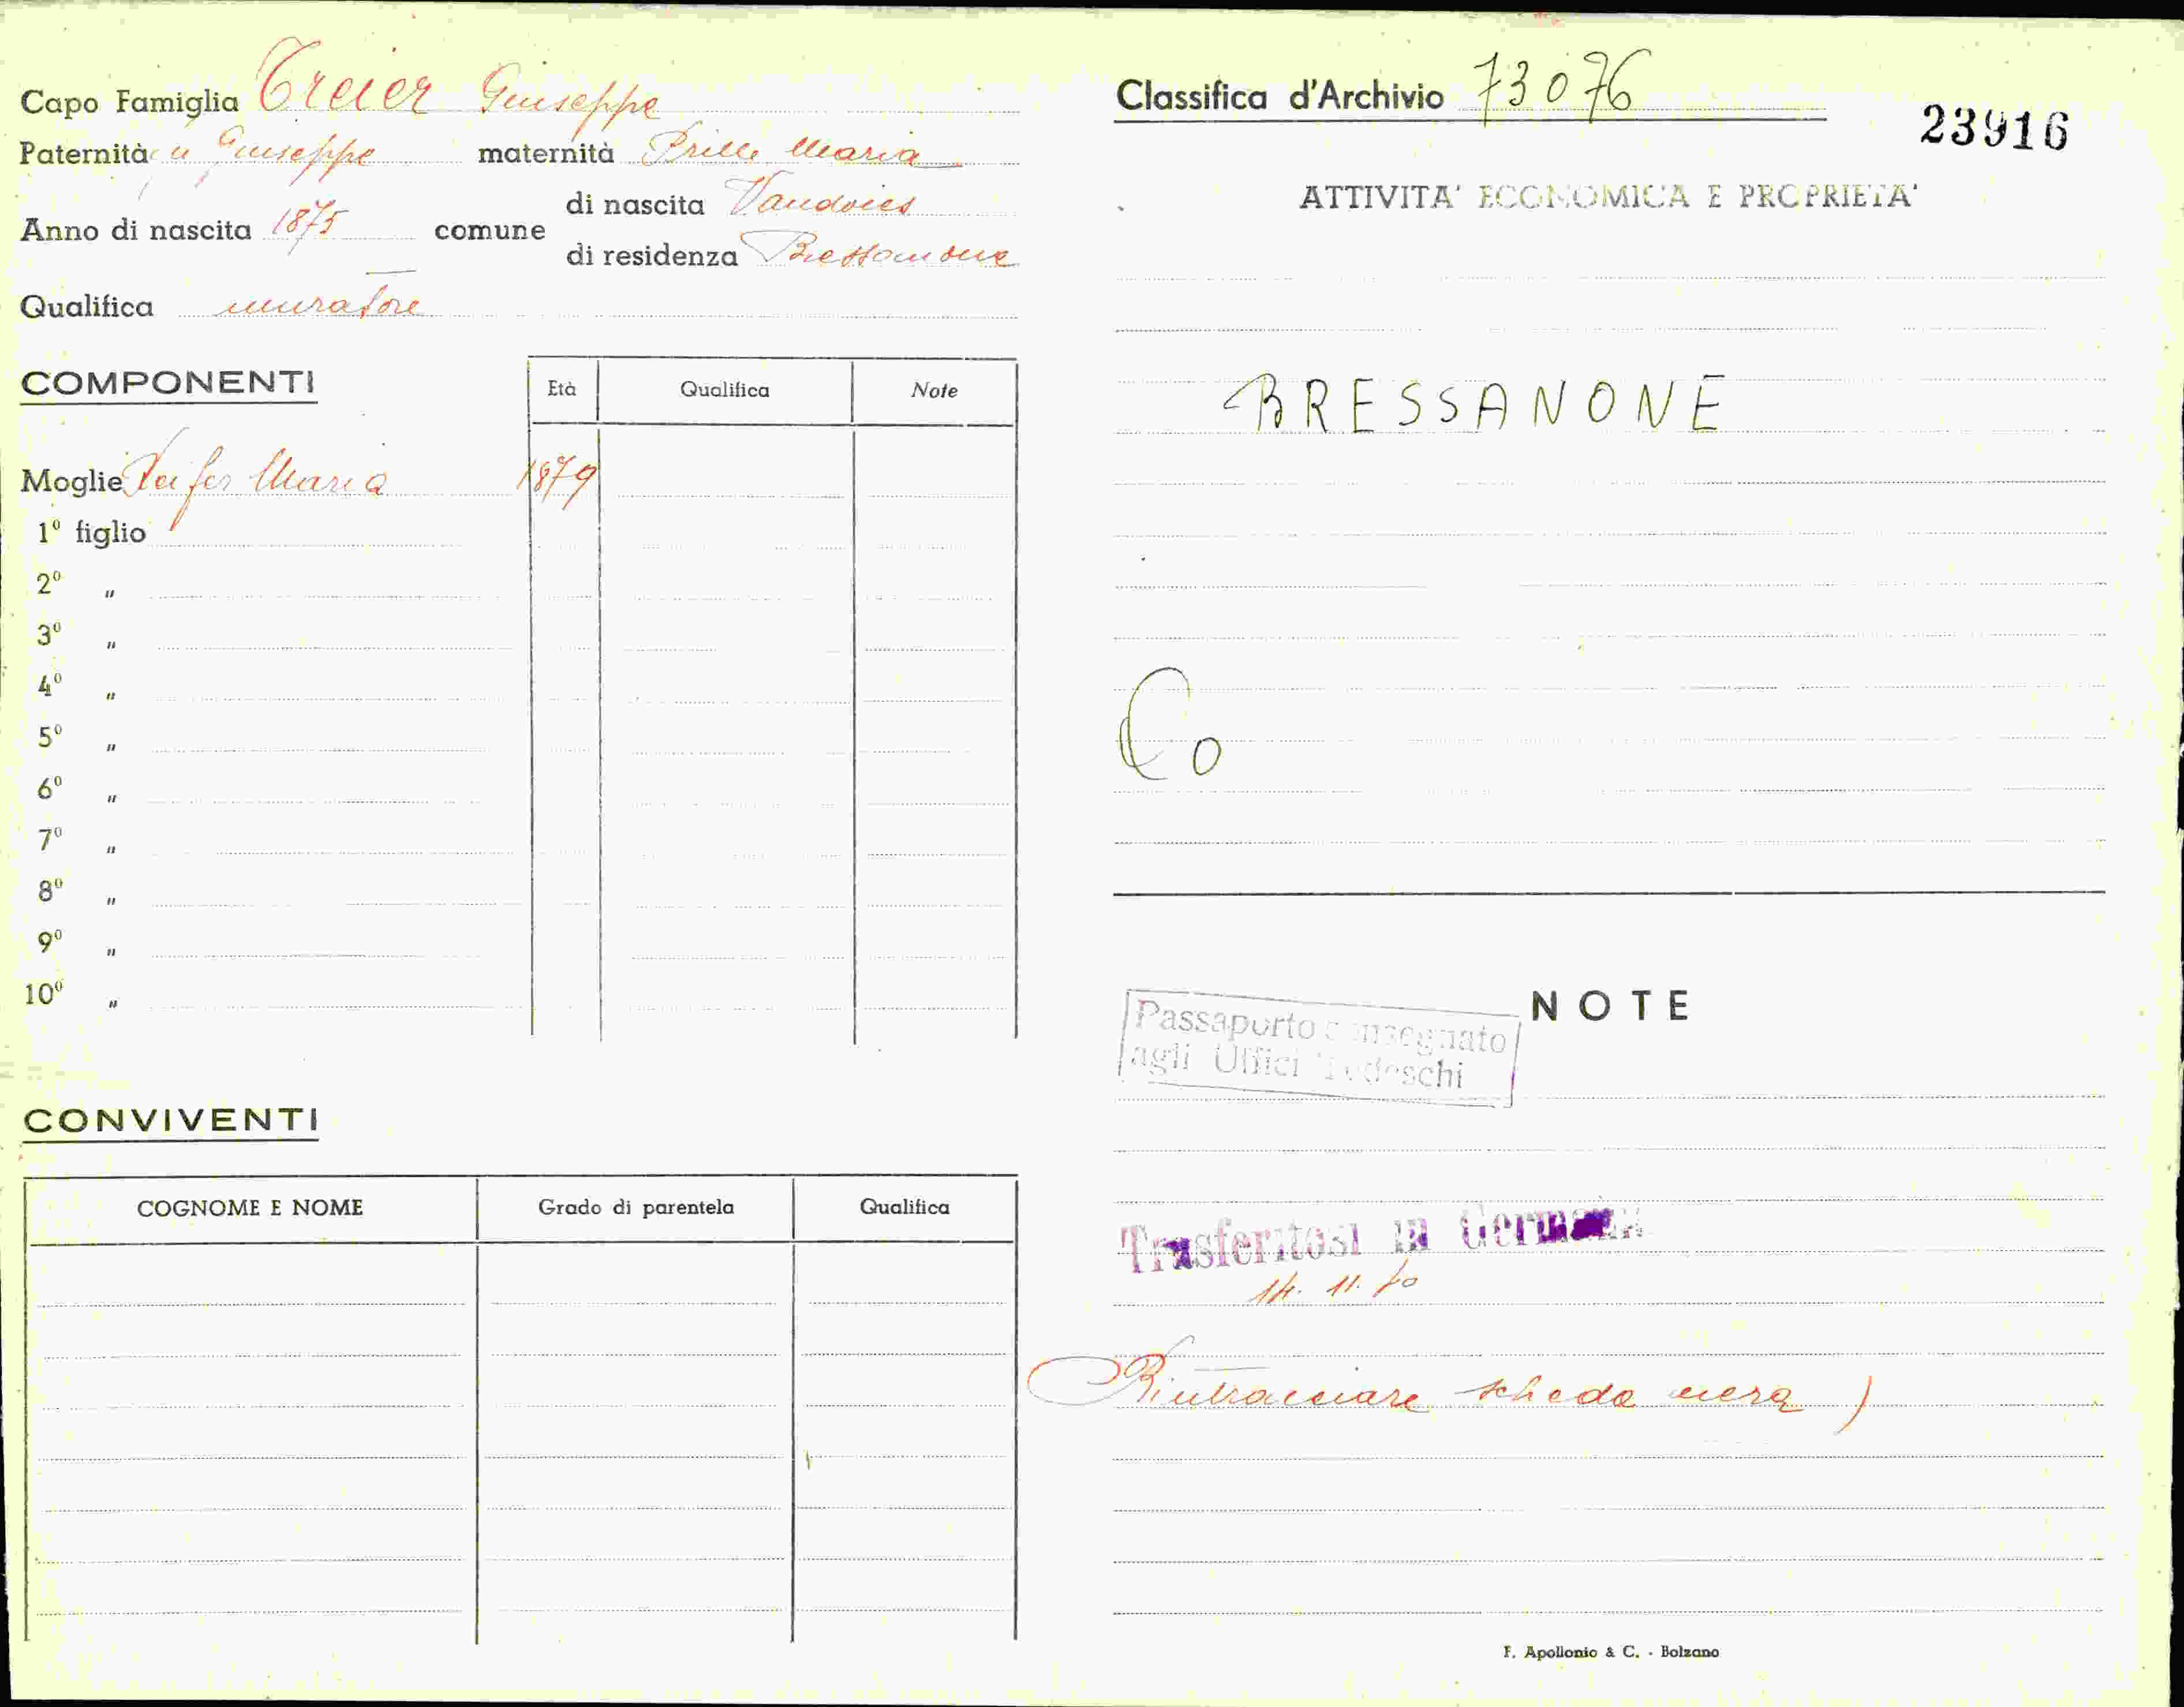 Capo Famiglia Treier Giuseppe
Paternità fu Giuseppe maternità Maria
Anno di nascita 1875 comune di nascita Vandoies
di residenza Bressanone
Qualifica muratore
COMPONENTI
Età Qualifica Note
Moglie Maria 1879
1º figlio
2º "
3º "
4º "
5º "
6º "
7º "
8º "
9º "
10º "
CONVIVENTI
COGNOME E NOME Grado di parentela Qualifica
Classifica d'Archivio 73076
23916
ATTIVITA' ECONOMICA E PROPRIETA'
BRESSANONE
Co
NOTE
Passaporto consegnato
agli Uffici Tedeschi
Trasferitosi in Germania
14. 11. 40
(Rintracciare scheda nera)
F. Apollonio & C. - Bolzano